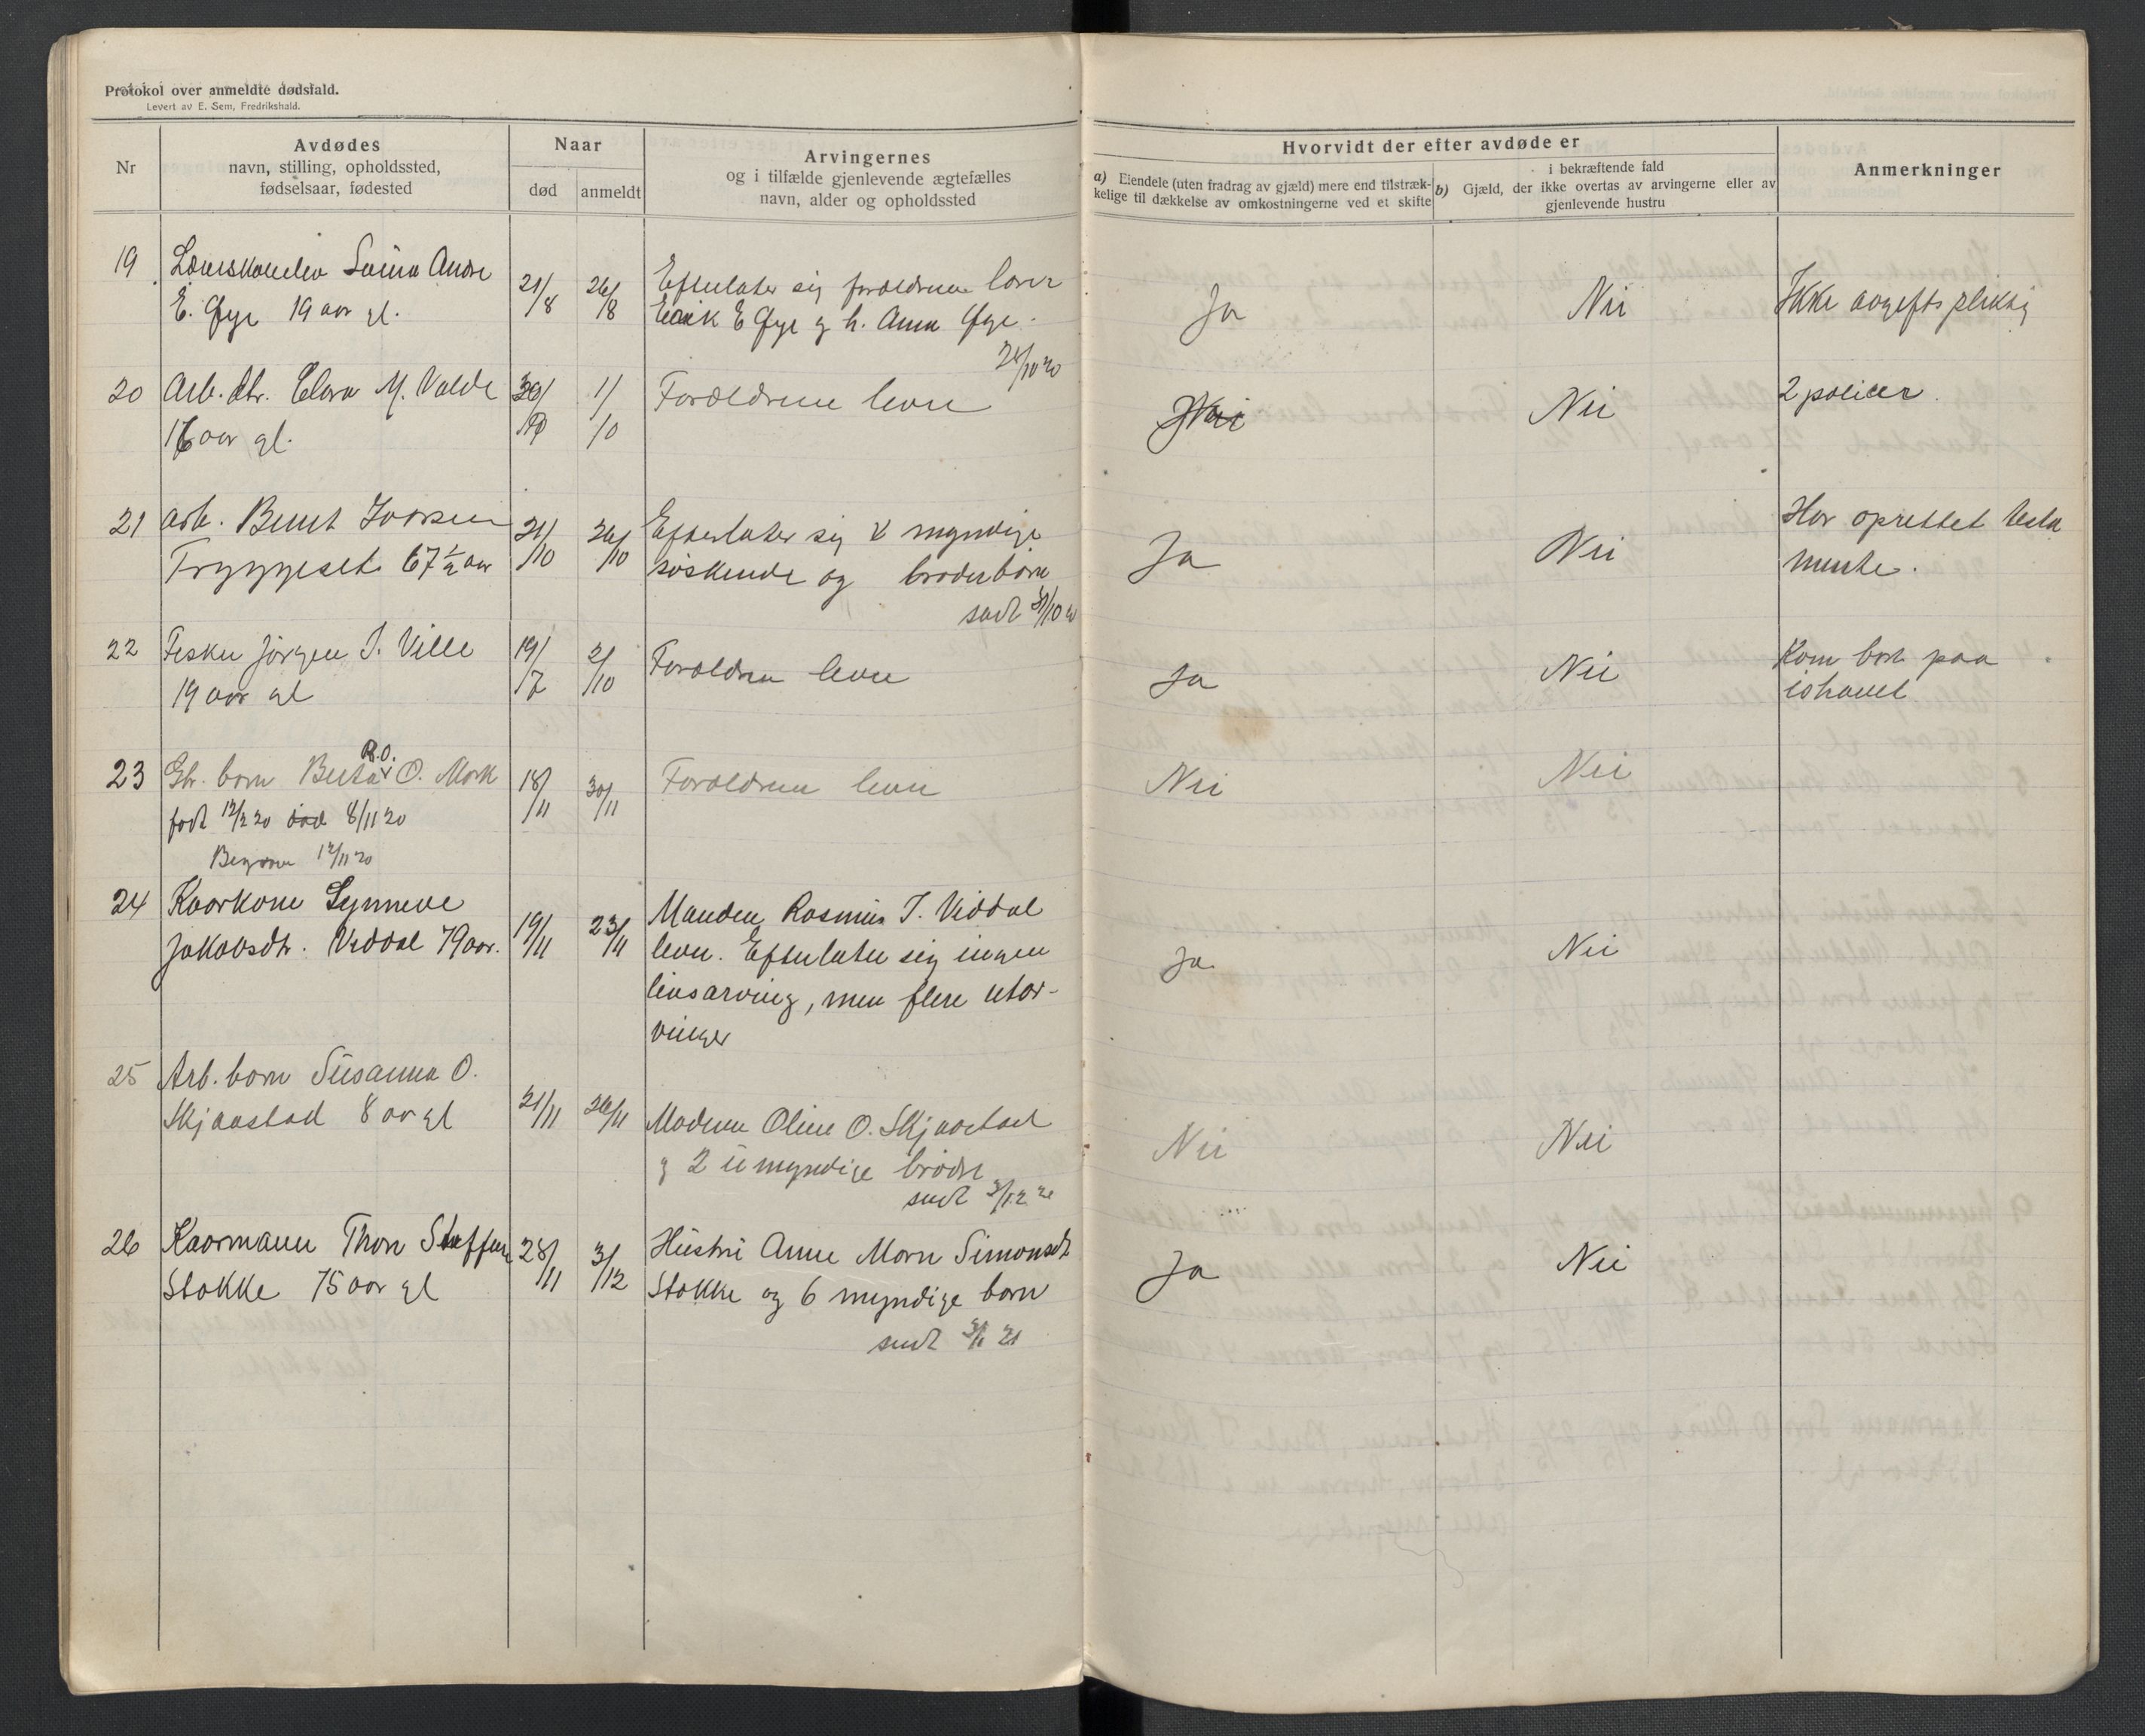 Protokol over anmeldte dødsfald.
Levert av E. Sem, Fredrikshald.
Nr
Avdødes
navn, stilling, opholdssted,
fødselsaar, fødested
Naar
død
anmeldt
Arvingernes
og i tilfælde gjenlevende ægtefælles
navn, alder og opholdssted
Hvorvidt der efter avdøde er
a) Eiendele (uten fradrag av gjæld) mere end tilstræk-
kelige til dækkelse av omkostningerne ved et skifte
i bekræftende fald
b) Gjæld, der ikke overtas av arvingerne eller av
gjenlevende hustru
Anmerkninger
19
E. Øye 19 aar gl.
21/8
26/8
Efterlater sig forældrene lærer
Eirik E Øye g h. Anna Øye.
Ja
Nei
Ikke avgiftspliktig
20 Arb. dtr. Clara M. Valde
16 aar gl.
1/10
Forældrene lever
Nei
2 policer.
21 Arb. Bernt Ivarsen
Tryggeset 67 1/2 aar
21/10
26/10
Efterlater sig myndige
søskende og broderbørn
sendt 31/10 20
Ja
Nei
Har oprettet testa
mente.
22 Fisker Jørgen J. Ville
19 aar gl
19/7
2/10
Forældrene lever
Ja
Nei
Kom bort paa
ishavet
23 Gbr. barn Berta R.O. O. Mork
født 12/2 20 død 8/11 20
Begravn 12/11 20
18/11
30/11
Forældrene lever
Nei
Nei
24 Kaarkone Synneve
Jakobsdtr. Viddal 79 aar.
19/11
23/11
Manden Rasmus J. Viddal
lever. Efterlater sig ingen
livsarving, men flere utar-
vinger
Ja
Nei
25 Arb. barn Susanna O.
Skjaastad 8 aar gl
21/11
26/11
Moderen Oline O. Skjaastad
g 2 umyndige brødre
sendt 3/12 20
Nei
Nei
26 Kaarmann Thore Steffen
Stokke 75 aar gl
28/11
3/12
Hustru Anne Marn Simonsdt
Stokke og 6 myndige barn
sendt 3/1 21
Ja
Nei